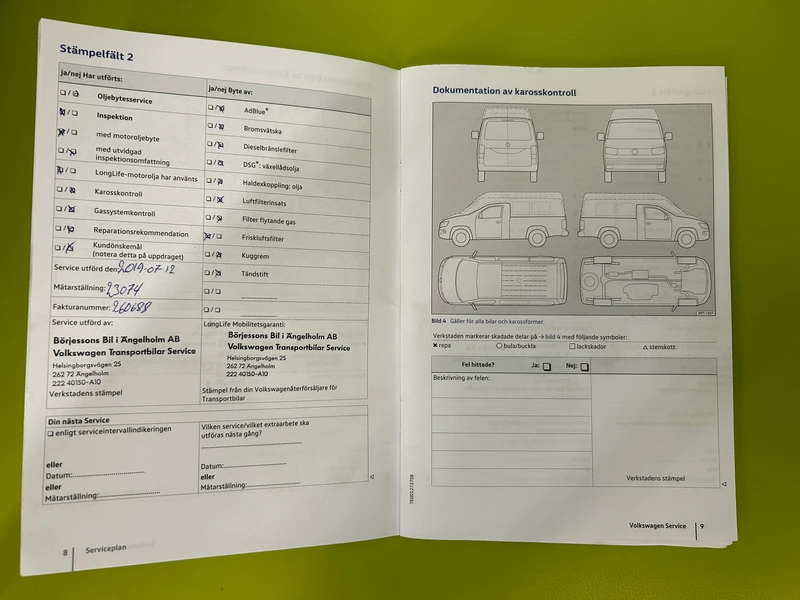 Stämpelfält 2
ja/nej Har utförts:
❑ / ❑ Oljebytesservice
❑ / ❑ Inspektion
❑ / ❑ med motoroljebyte
❑ / ❑ med utvidgad
inspektionsomfattning
❑ / ❑ LongLife-motorolja har använts
❑ / ❑ Karosskontroll
❑ / ❑ Gassystemkontroll
❑ / ❑ Reparationsrekommendation
❑ / ❑ Kundönskemål
(notera detta på uppdraget)
Service utförd den: 2019-07-12
Mätarställning: 23074
Fakturanummer: 260688
ja/nej Byte av:
❑ / ❑ AdBlue®
❑ / ❑ Bromsvätska
❑ / ❑ Dieselbränslefilter
❑ / ❑ DSG®: växellådsolja
❑ / ❑ Haldexkoppling: olja
❑ / ❑ Luftfilterinsats
❑ / ❑ Filter flytande gas
❑ / ❑ Friskluftsfilter
❑ / ❑ Kuggrem
❑ / ❑ Tändstift
❑ / ❑ ....................
❑ / ❑ ....................
Service utförd av:
Börjessons Bil i Ängelholm AB
Volkswagen Transportbilar Service
Helsingborgsvägen 25
262 72 Ängelholm
222 40150-A10
Verkstadens stämpel
LongLife Mobilitetsgaranti:
Börjessons Bil i Ängelholm AB
Volkswagen Transportbilar Service
Helsingborgsvägen 25
262 72 Ängelholm
222 40150-A10
Stämpel från din Volkswagenåterförsäljare för
Transportbilar
Din nästa Service
❑ enligt serviceintervallindikeringen
eller
Datum:....................
eller
Mätarställning:....................
Vilken service/vilket extraarbete ska
utföras nästa gång?
....................
Datum:....................
eller
Mätarställning:....................
8 Serviceplan
Dokumentation av karosskontroll
Bild 4 Gäller för alla bilar och karossformer.
Verkstaden markerar skadade delar på → bild 4 med följande symboler:
✖ repa ○ bula/buckla □ lackskador △ stenskott
Fel hittade? Ja: ❑ Nej: ❑
Beskrivning av felen:
Verkstadens stämpel
7E0012737SB
Volkswagen Service 9